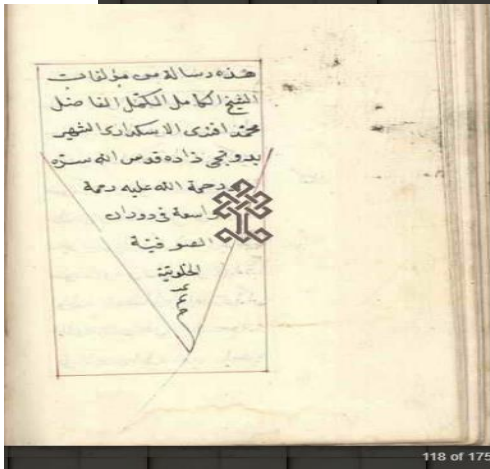 هذه رسالة من مؤلفات
الشيخ الكامل المكمل الفاضل
محمد افندى الاسكدارى الشهير
بدوغجى زاده قدس الله سره
ورحمة الله عليه رحمة
واسعة فى دوران
الصوفية
الخلوتية
118 of 175